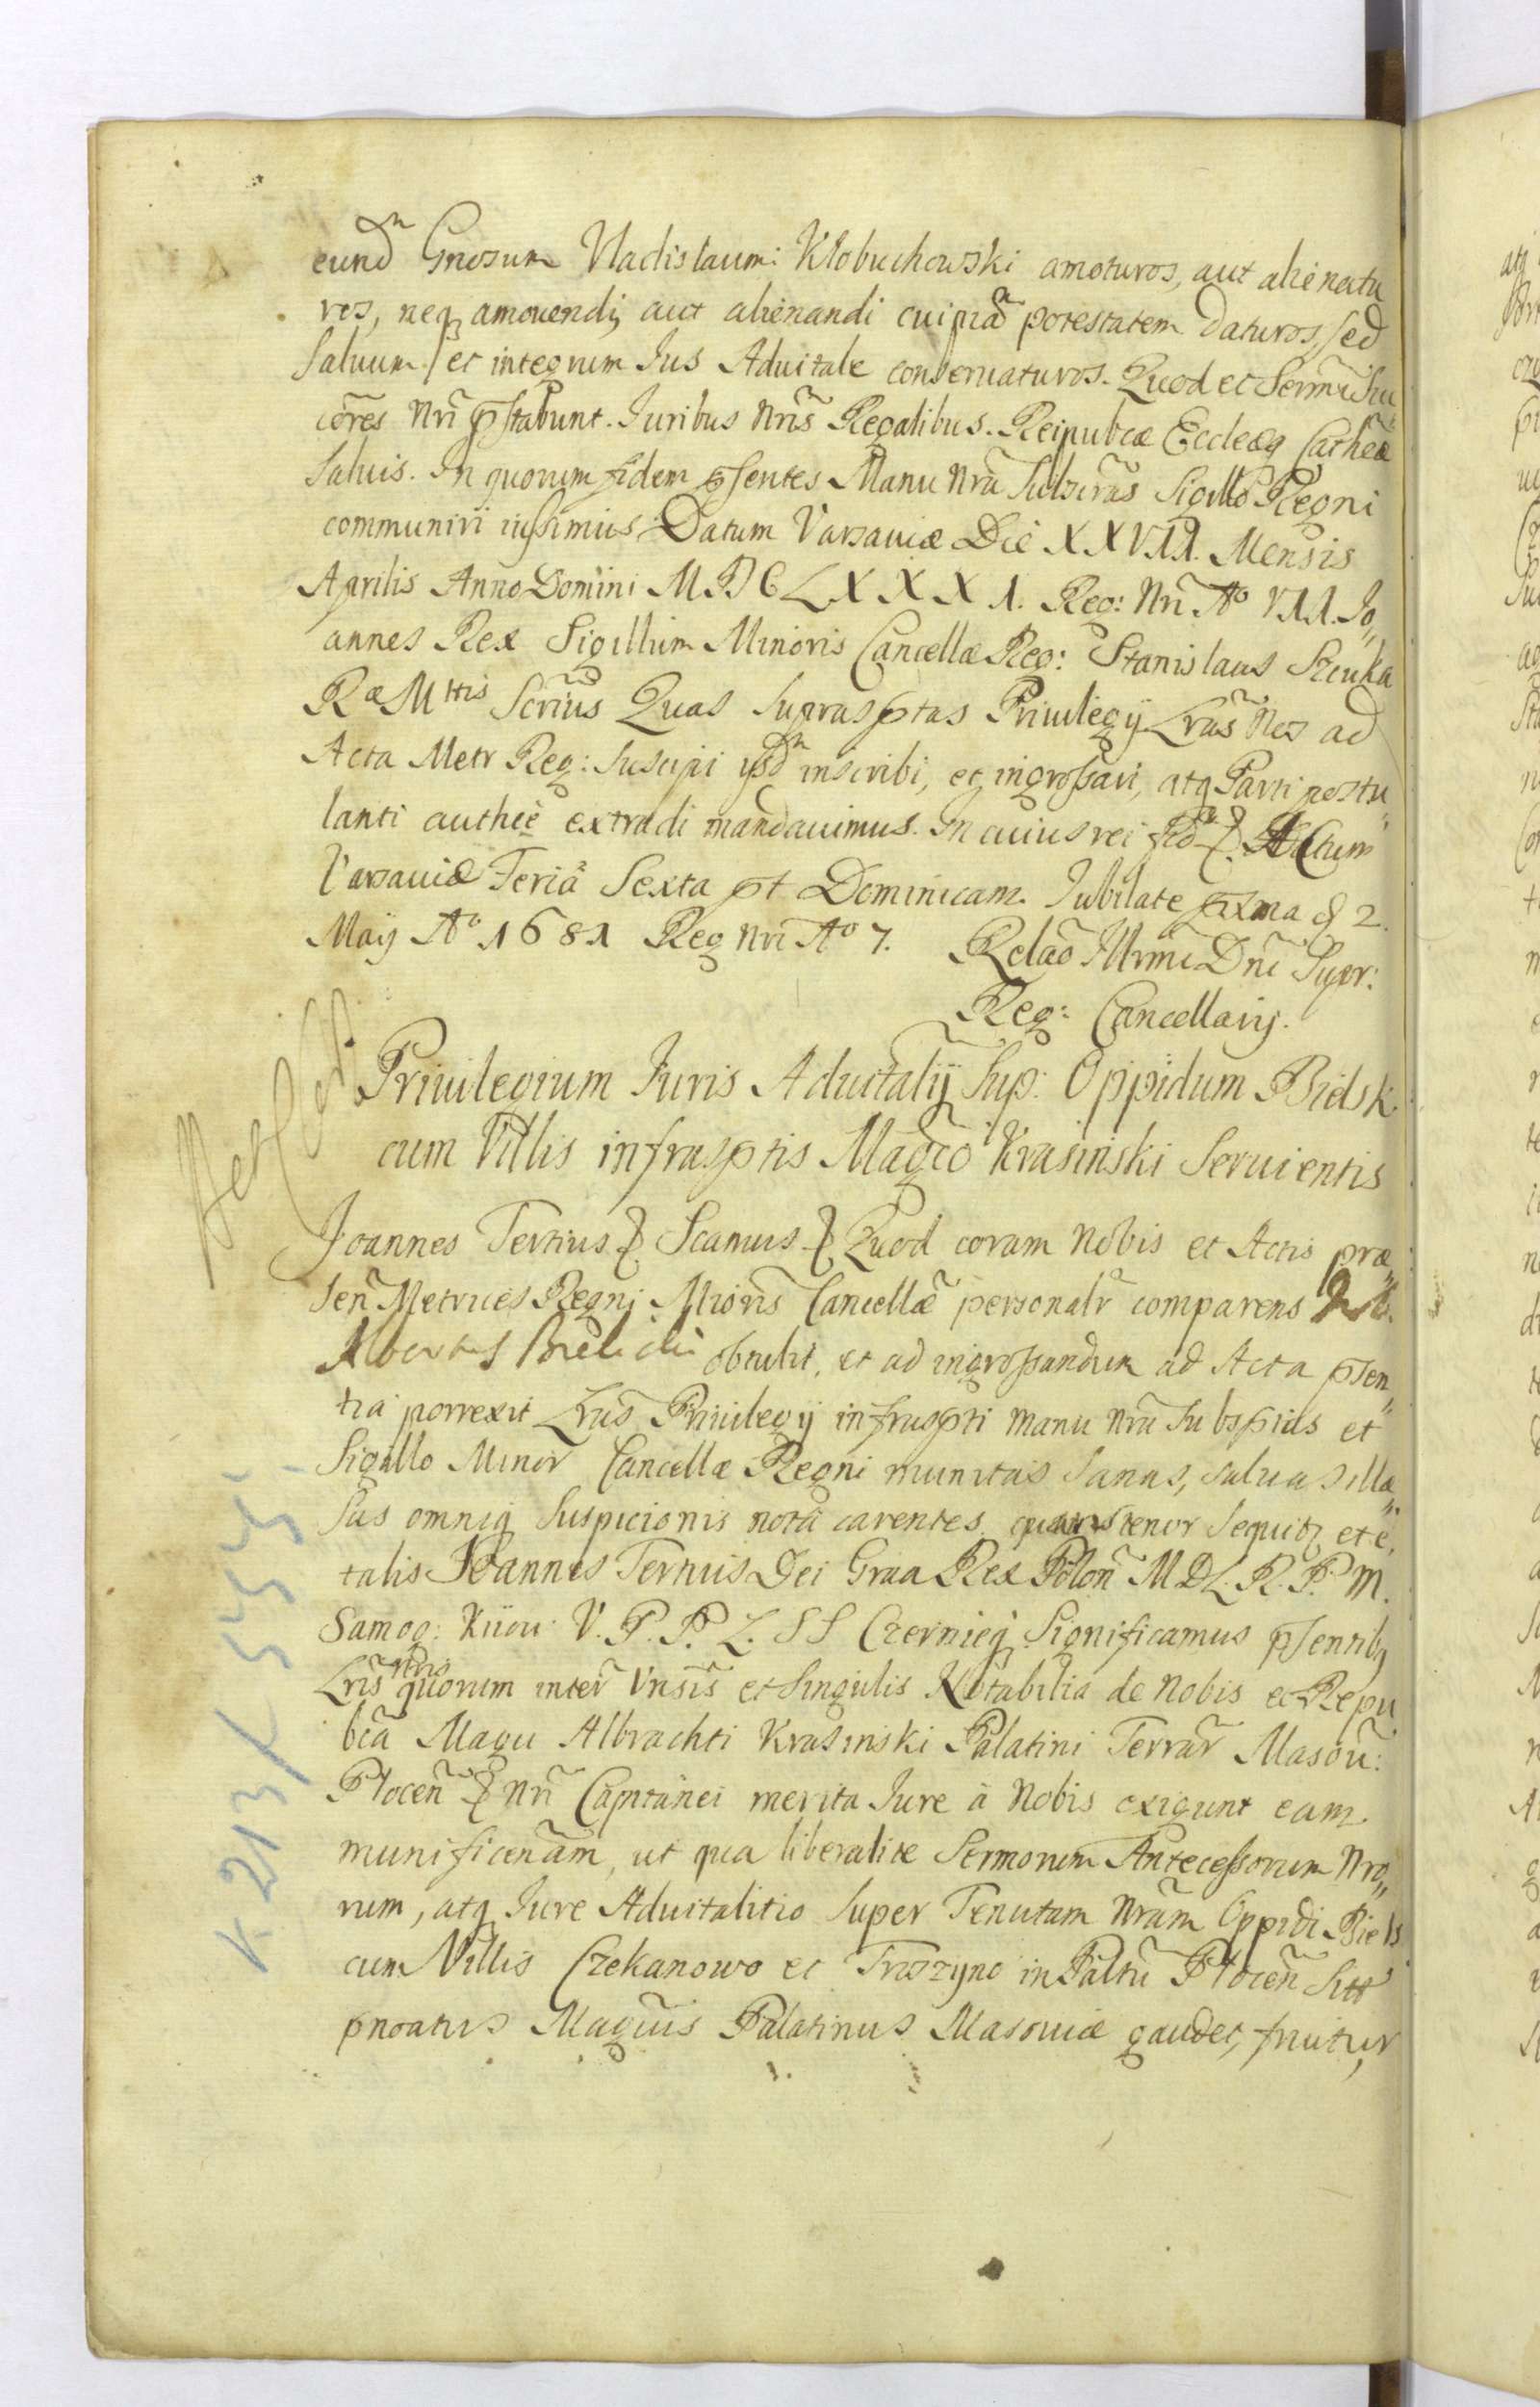 eund Gnosum Vladislaum: Kłobuchowski amoturos, aut alienatu
ros, neq amouendi, aut alienandi cuipiã potestatem Daturos, sed
saluum, et integrum Ius Aduitale conseruaturos. Quod et Sermĩ Su
cõres Nrĩ pstabunt. Iuribus Nrĩs Regalibus. Reipubcæ Eccleæq Cathcæ
Saluis. In quorum fidem psentes Manu Nrã Subscras Sigillo Regni
communiri iussimus Datum Varsauiæ Die XXVII. Mensis
Aprilis Anno Domini MDCLXXXI. Reg: Nrĩ Aº VII. Jo„
annes Rex Sigillum Minoris Cancellæ Reg: Stanislaus Szczuka
Ræ Mttis Scrius Quas Suprasptas Priuilegij Lras Nos ad
Acta Metr Reg: Suscipi ijsd inscribi, et ingrossari, atq Parti postu„
lanti authẽ extradi mandauimus. In cuius rei fid Actum
Varsauiæ Feriâ Sexta pt Dominicam Iubilate pxma d 2.
Maij Aº 1681 Reg Nrĩ Aº 7. Relaõ Illrmi Dnĩ Supr:
Reg: Cancellarij.
Priuilegium Iuris Aduitalij Sup: Oppidum Bielsk
cum Villis infrasptis Magco Krasinski Seruientis
Joannes Tertius Scamus Quod coram Nobis et Actis præ„
sen Metrices Regni Mioris Cancellæ personalr comparens
Albertus obtulit, et ad ingrossandum ad Acta psen„
tia porrexit Lras Priuilegij infraspti Manu Nrã Subsptas et
Sigillo Minor Cancellæ Regni munitas Sanas, saluas illæ„
sas omniq Suspicionis notâ carentes quarus tenor Sequitz et ẽ
talis Joannes Tertius Dei Graa Rex Polon M D L. R. P. M.
Samog: Kiiou V. P. P. L. SS Czernieq Significamus psentibq
Lris nris quorum inter Vnsis et Singulis Notabilia de Nobis et Repu
bca Magci Albrachti Krasinski Palatini Terrar Masou:
Płocen Nrĩ Capitanei merita Iure à Nobis exigunt eam
munificenam, ut qua liberalite Sermorum Antecessorum Nro„
rum, atq Iure Aduitalitio Super Tenutam Nram Oppidi Biels
cum Villis Czekanowo et Troszyno in Paltu Płocen Sitt
pnoatus Magcus Palatinus Masouiæ gaudet, fruitur
K 213/